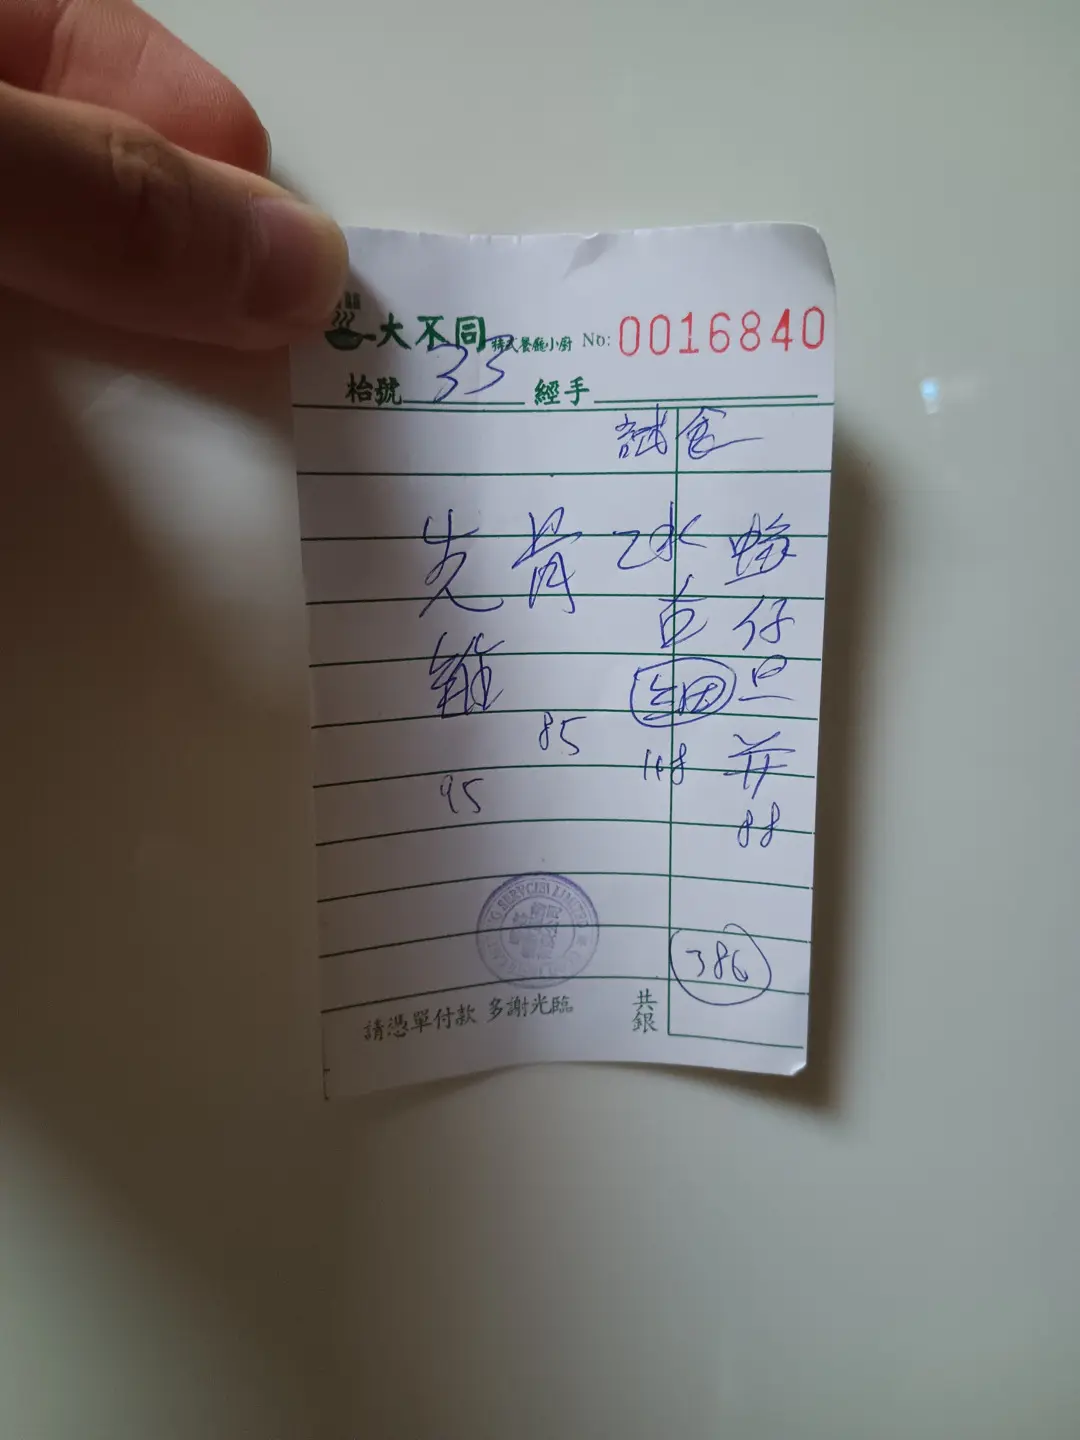 大不同 特式餐廳小廚 No: 0016840
枱號 33 經手
試食
蠔仔旦并 88
冰豆 細 118
骨 85
95
386
共銀
請憑單付款 多謝光臨